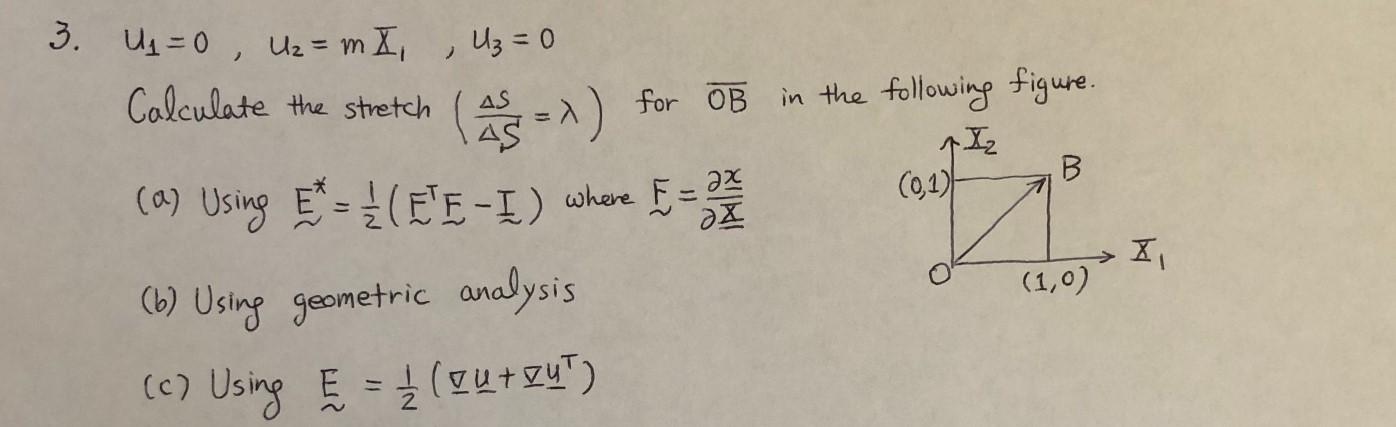 3. u₁ = 0 , u₂ = m X₁ , u₃ = 0
Calculate the stretch (Δs/ΔS = λ) for O̅B̅ in the following figure.
X₂
(0,1)
B
(a) Using E* = ½(FᵀF - I) where F = ∂x/∂X
O
(1,0)
X₁
(b) Using geometric analysis
(c) Using E = ½(∇u + ∇uᵀ)